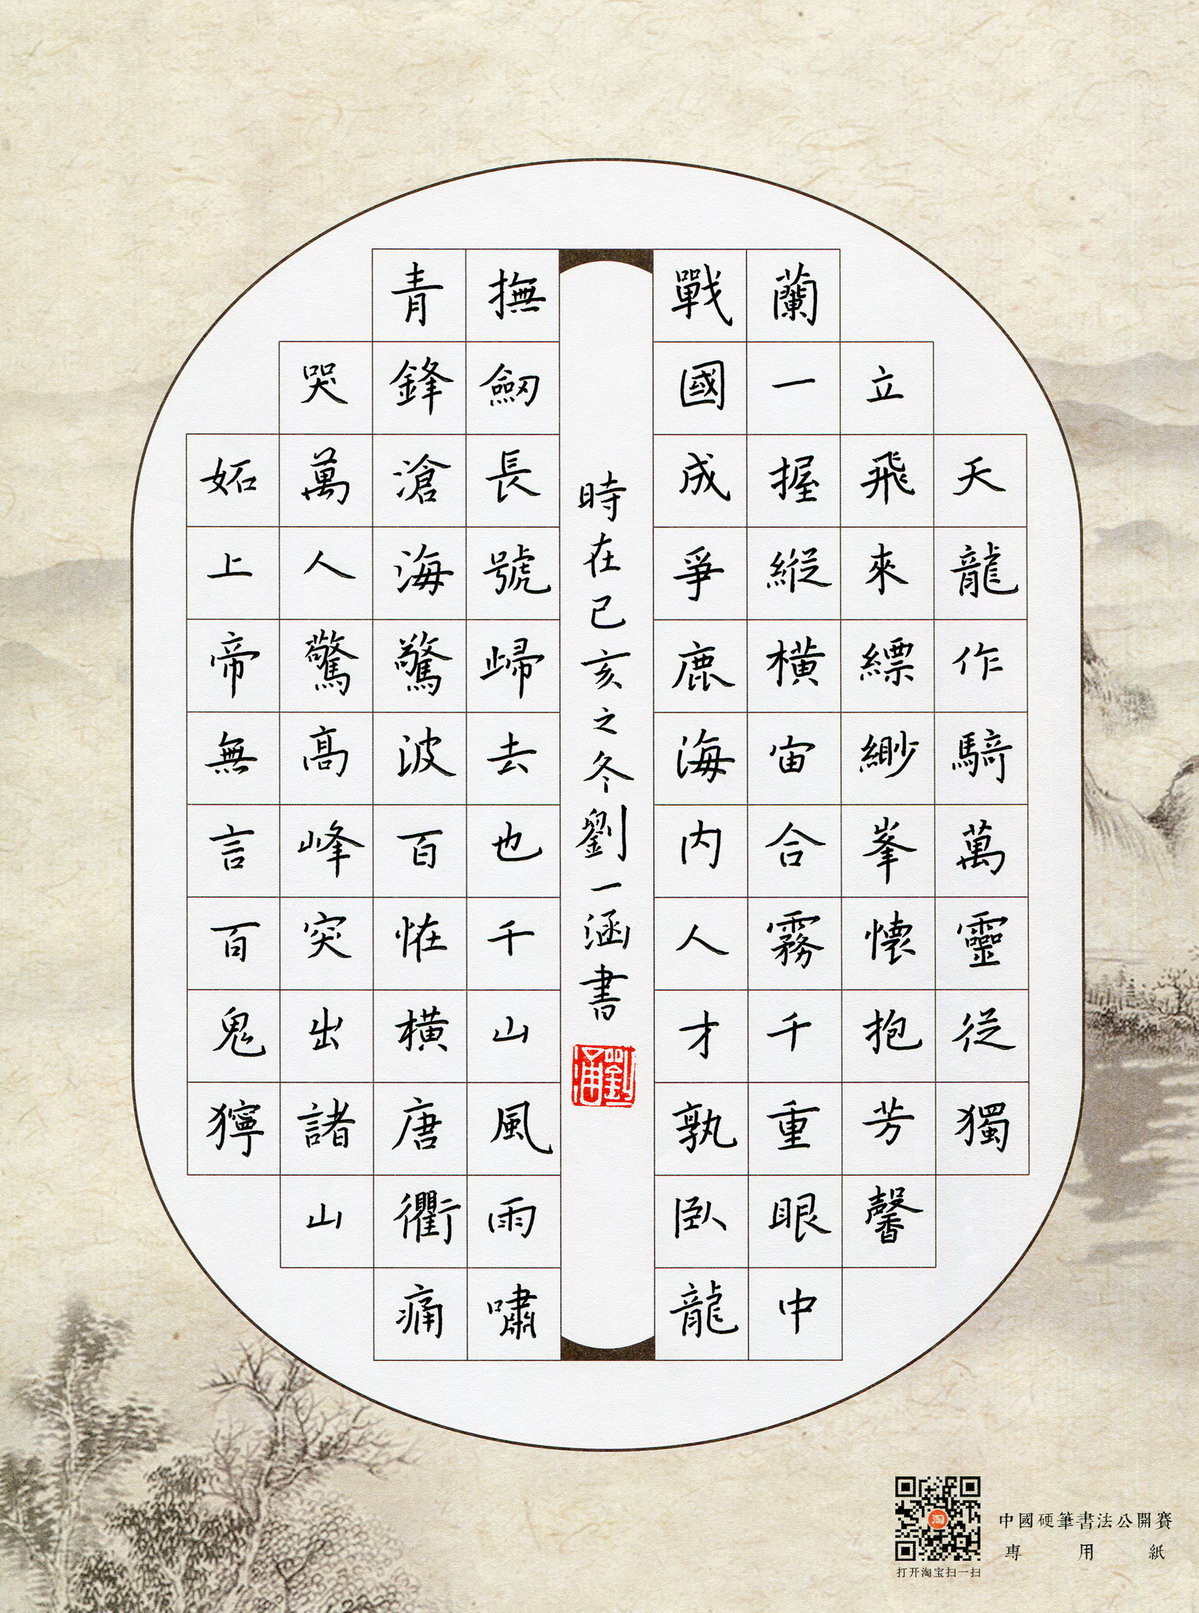 天龍作騎萬靈從獨
立飛來縹緲峯懷抱芳馨
蘭一握縱橫宙合霧千重眼中
戰國成爭鹿海內人才孰臥龍
時在已亥之冬劉一涵書
撫劒長號歸去也千山風雨嘯
青鋒滄海驚波百怪橫唐衢痛
哭萬人驚高峰突出諸山
妬上帝無言百鬼獰
中國硬筆書法公開賽
專用紙
打开淘宝扫一扫
淘